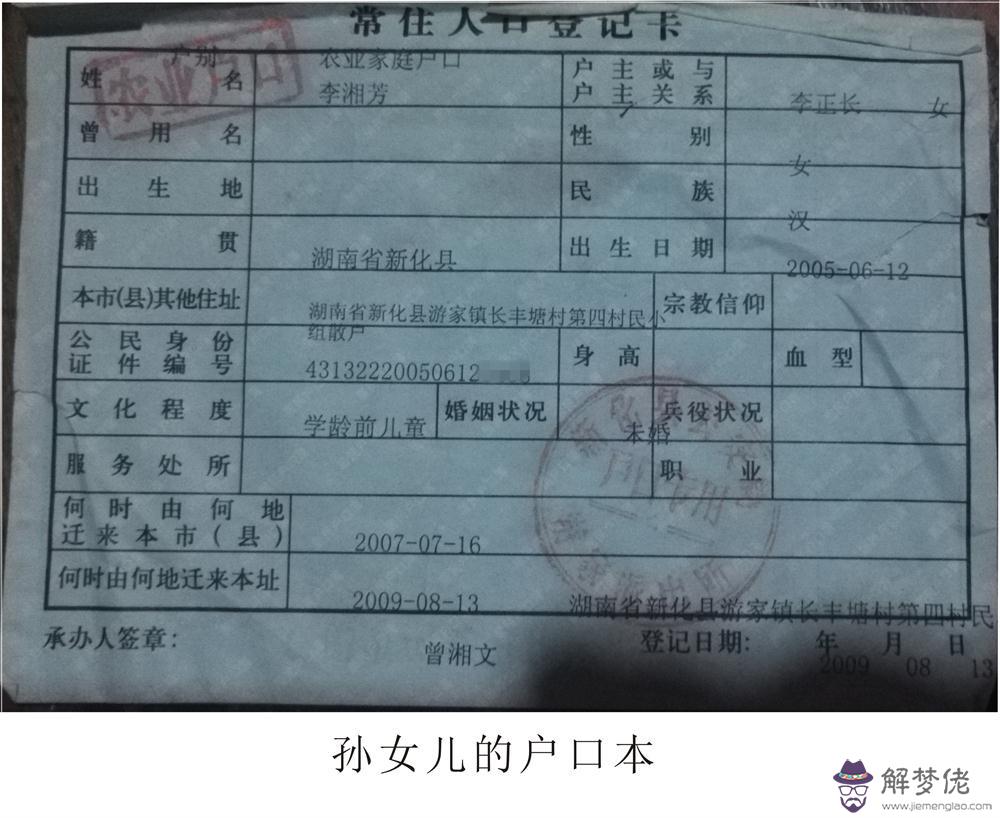 常住人口登记卡
户别 农业家庭户口
农业户口
姓名 李湘芳 户主或与户主关系 李正长 女
曾用名 性别 女
出生地 民族 汉
籍贯 湖南省新化县 出生日期 2005-06-12
本市(县)其他住址 湖南省新化县游家镇长丰塘村第四村民小组散户 宗教信仰
公民身份证件编号 43132220050612 身高 血型
文化程度 学龄前儿童 婚姻状况 未婚 兵役状况
服务处所 职业
何时由何地迁来本市(县) 2007-07-16
何时由何地迁来本址 2009-08-13 湖南省新化县游家镇长丰塘村第四村民
承办人签章: 曾湘文 登记日期: 2009年08月13日
孙女儿的户口本
解梦佬
www.jiemenglao.com